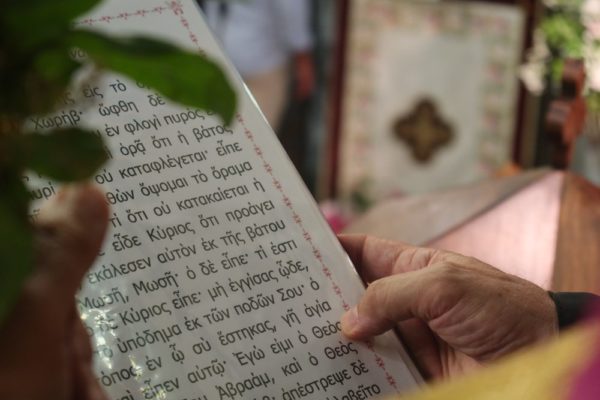 εἰς τὸ
Χωρήβ· ὤφθη δὲ
ἐν φλογὶ πυρὸς
ὁρᾷ ὅτι ἡ βάτος
οὐ καταφλέγεται· εἶπε
ὄψομαι τὸ ὅραμα
τί ὅτι οὐ κατακαίεται ἡ
εἶδε Κύριος ὅτι προάγει
ἐκάλεσεν αὐτὸν ἐκ τῆς βάτου
Μωσῆ, Μωσῆ· ὁ δὲ εἶπε· τί ἐστι
Κύριος εἶπε· μὴ ἐγγίσας ὧδε,
τὸ ὑπόδημα ἐκ τῶν ποδῶν Σου· ὁ
τόπος ἐν ᾧ σὺ ἕστηκας, γῆ ἁγία
εἶπεν αὐτῷ· Ἐγώ εἰμι ὁ Θεὸς
Ἀβραάμ, καὶ ὁ Θεὸς
ἀπέστρεψε δὲ